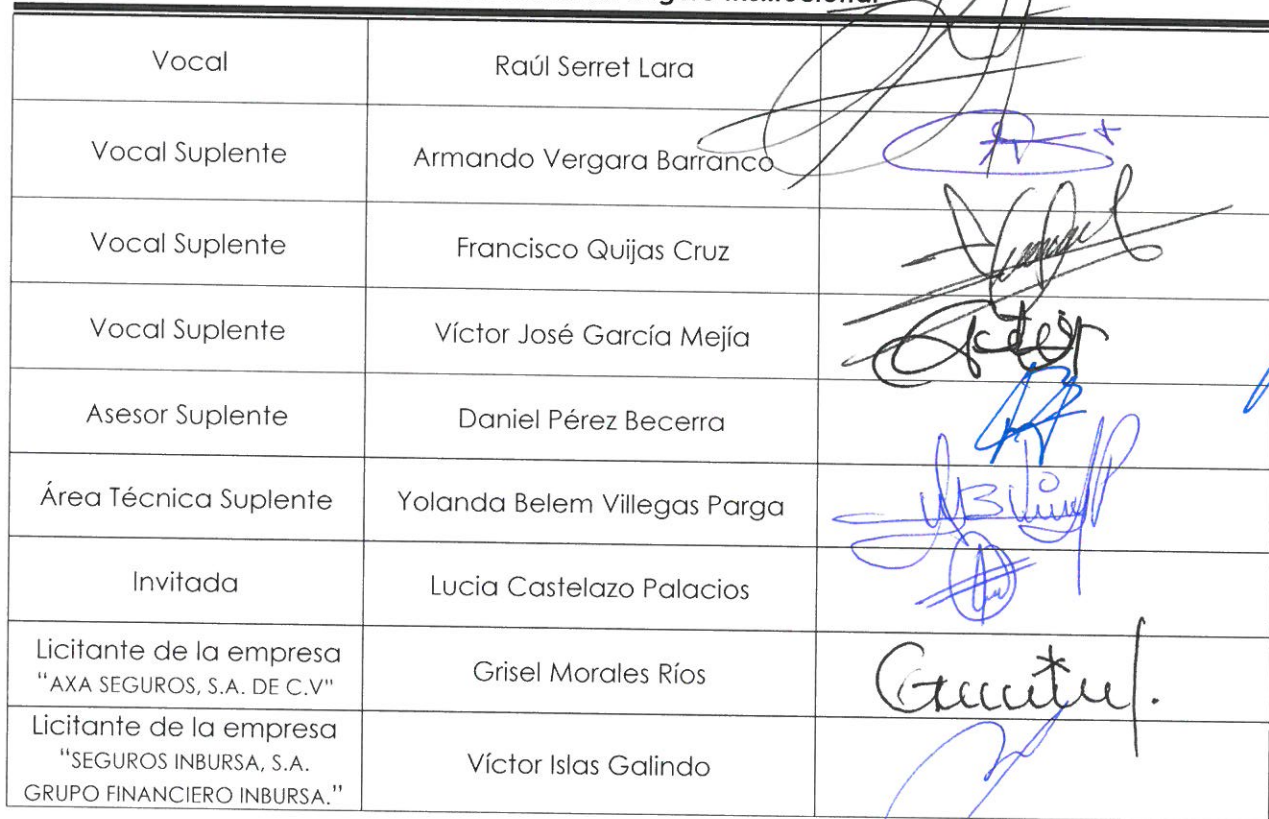 Institucional
Vocal Raúl Serret Lara
Vocal Suplente Armando Vergara Barranco
Vocal Suplente Francisco Quijas Cruz
Vocal Suplente Víctor José García Mejía
Asesor Suplente Daniel Pérez Becerra
Área Técnica Suplente Yolanda Belem Villegas Parga
Invitada Lucia Castelazo Palacios
Licitante de la empresa
"AXA SEGUROS, S.A. DE C.V" Grisel Morales Ríos
Licitante de la empresa
"SEGUROS INBURSA, S.A. Víctor Islas Galindo
GRUPO FINANCIERO INBURSA."